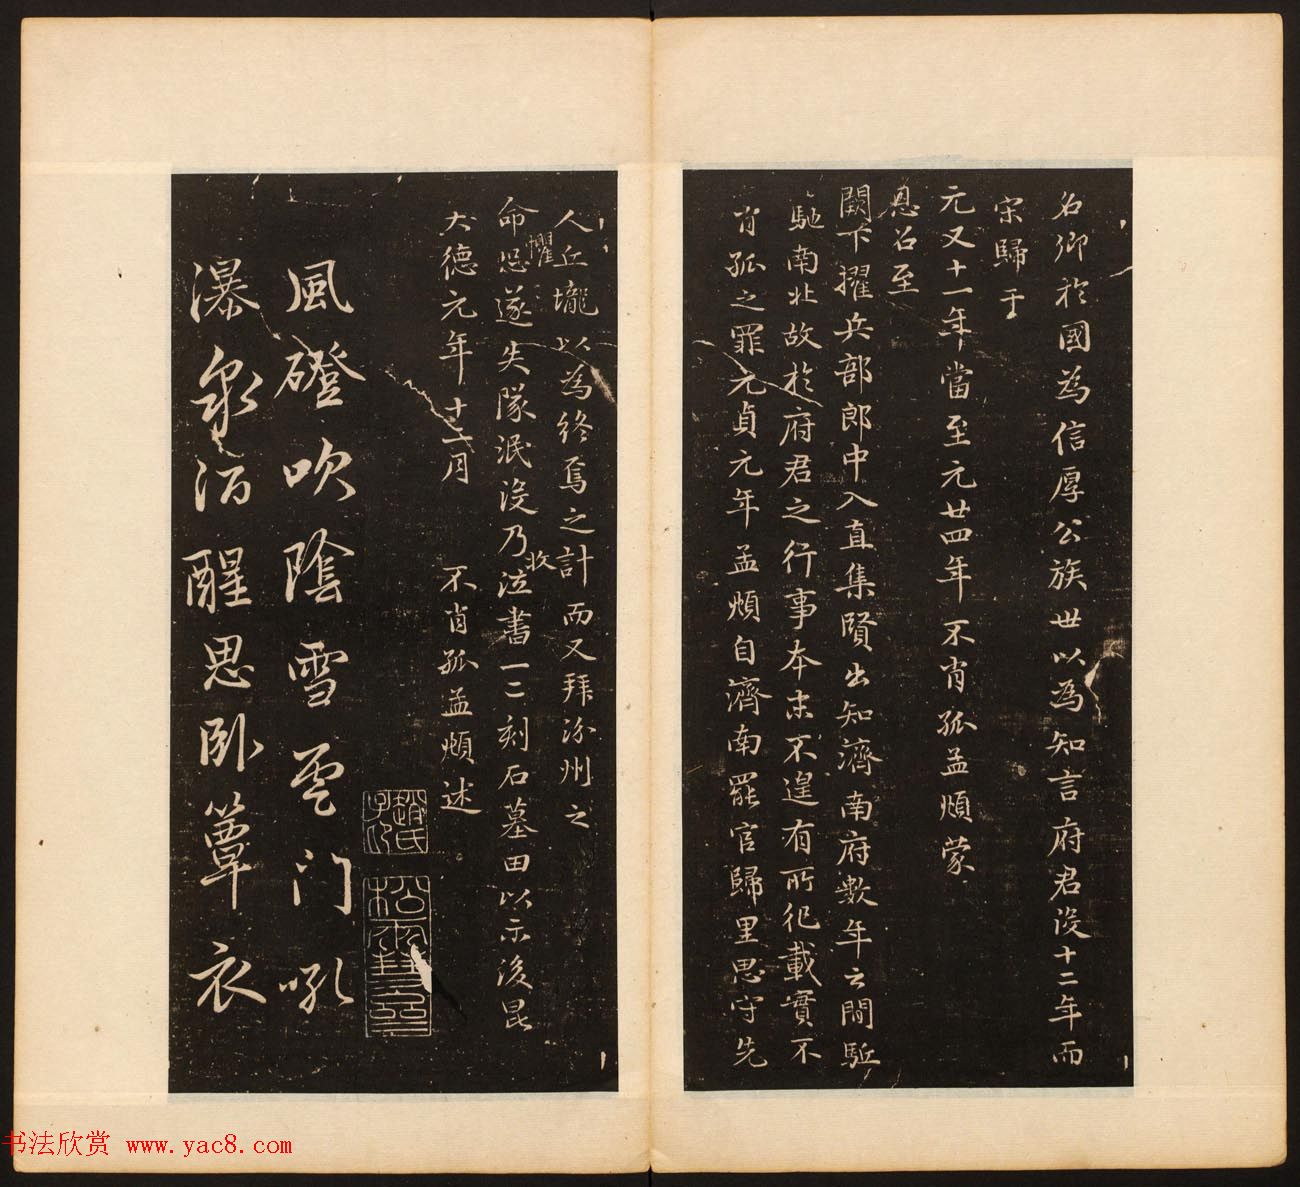 名卿於國為信厚公族世以為知言府君沒十二年而
宋歸于
元又十一年當至元廿四年不肖孤孟頫蒙
恩召至
闕下擢兵部郎中入直集賢出知濟南府數年之間駈
馳南北故於府君之行事本末不遑有所紀載實不
肖孤之罪元貞元年孟頫自濟南罷官歸里思守先
人丘壠以為終焉之計而又拜汾州之
命恐遂失隊泯沒乃泣書一二刻石墓田以示後昆
懼
收
大德元年十二月 不肖孤孟頫述
趙氏子昂
松雪齋
風磴吹陰雪雲門吼
瀑泉酒醒思臥簟衣
书法欣赏 www.yac8.com